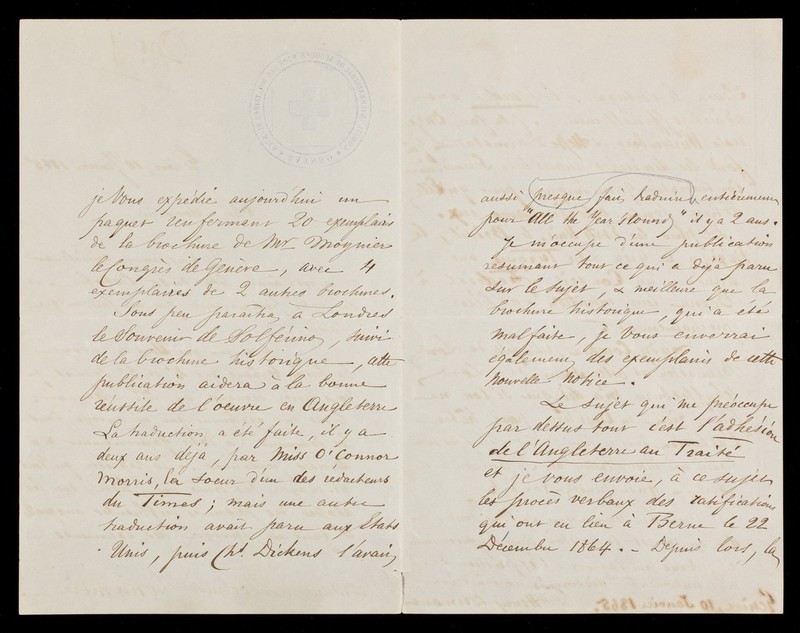 je Vous expédie aujourd'hui un
paquet renfermant 20 exemplaires
de la brochure de Mr Moynier
le Congrès de Genève, avec 4
exemplaires de 2 autres brochures.
Sous peu paraîtra, à Londres
le Souvenir de Solférino, suivi
de la brochure historique, cette
publication aidera à la bonne
réussite de l'oeuvre en Angleterre
La traduction a été faite, il y a
deux ans déjà, par Miss O'Connor
Morris, la soeur d'un des rédacteurs
du Times; mais une autre
traduction avait paru aux Etats
Unis, puis Chs. Dickens l'avait
aussi presque fait traduire entièrement
pour "All the Year Round" il y a 2 ans.
Je m'occupe d'une publication
résumant tout ce qui a déjà paru
sur le sujet, & meilleure que la
brochure historique, qui a été
mal faite, je Vous enverrai
également des exemplaires de cette
Nouvelle Notice.
Le sujet qui me préoccupe
par dessus tout c'est l'adhésion
de l'Angleterre au Traité
et je vous envoie, à ce sujet
les procès verbaux des ratifications
qui ont eu lieu à Berne le 22
Décembre 1864. - Depuis lors, la